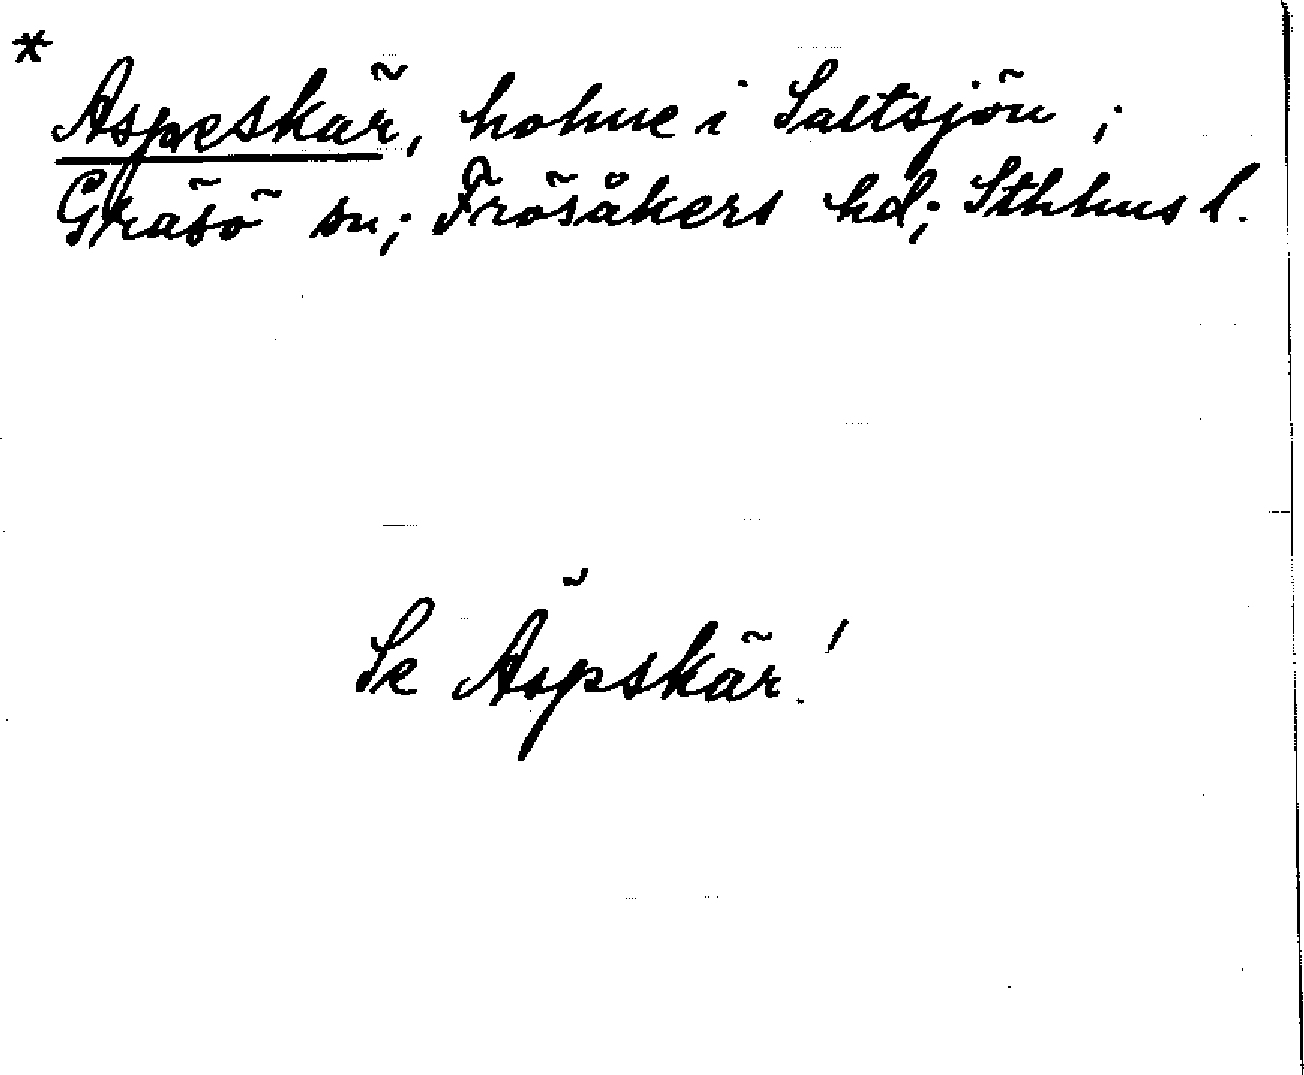 *
Aspeskär, holme i Saltsjön;
Gräsö sn; Frösåkers hd; Sthlms l.
Se Äspskär!